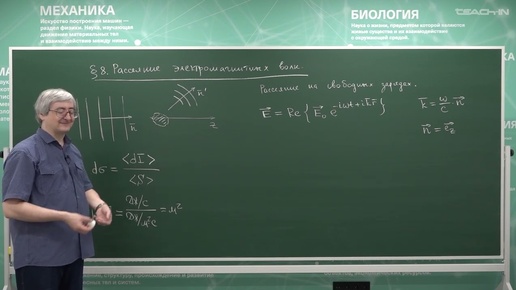 МЕХАНИКА
Искусство построения машин —
раздел физики. Наука, изучающая
движение материальных тел
и взаимодействия между ними.
TEACH-IN
БИОЛОГИЯ
Наука о жизни, предметом которой являются
живые существа и их взаимодействие
с окружающей средой.
§ 8. Рассеяние электромагнитных волн.
Рассеяние на свободных зарядах.
n⃗
n⃗'
z
E⃗ = Re { E⃗₀ e^{-iωt + i k⃗ r⃗} }
k⃗ = ω/c · n⃗
n⃗ = e⃗_z
dσ = <dI> / <S>
= Дж/с / Дж/м²с = м²